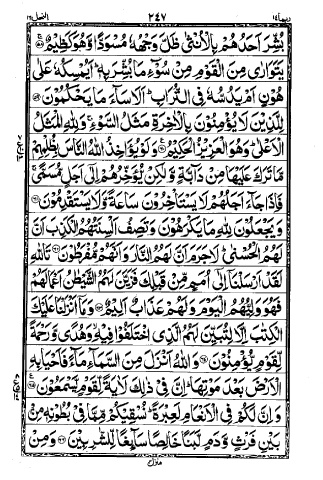 ربما ١٤ ٢٤٧ النحل ١٦
بُشِّرَ اَحَدُهُمْ بِالْاُنْثٰى ظَلَّ وَجْهُهٗ مُسْوَدًّا وَّهُوَ كَظِيْمٌ ۚ ۝٥٨
يَتَوَارٰى مِنَ الْقَوْمِ مِنْ سُوْٓءِ مَا بُشِّرَ بِهٖ ؕ اَيُمْسِكُهٗ عَلٰى
هُوْنٍ اَمْ يَدُسُّهٗ فِى التُّرَابِ ؕ اَلَا سَآءَ مَا يَحْكُمُوْنَ ۝٥٩
لِلَّذِيْنَ لَا يُؤْمِنُوْنَ بِالْاٰخِرَةِ مَثَلُ السَّوْءِ ۚ وَلِلّٰهِ الْمَثَلُ
الْاَعْلٰى ؕ وَهُوَ الْعَزِيْزُ الْحَكِيْمُ ۝٦٠ وَلَوْ يُؤَاخِذُ اللّٰهُ النَّاسَ بِظُلْمِهِمْ
مَّا تَرَكَ عَلَيْهَا مِنْ دَآبَّةٍ وَّلٰكِنْ يُّؤَخِّرُهُمْ اِلٰٓى اَجَلٍ مُّسَمًّى ۚ
فَاِذَا جَآءَ اَجَلُهُمْ لَا يَسْتَاْخِرُوْنَ سَاعَةً وَّلَا يَسْتَقْدِمُوْنَ ۝٦١
وَيَجْعَلُوْنَ لِلّٰهِ مَا يَكْرَهُوْنَ وَتَصِفُ اَلْسِنَتُهُمُ الْكَذِبَ اَنَّ
لَهُمُ الْحُسْنٰى ؕ لَا جَرَمَ اَنَّ لَهُمُ النَّارَ وَاَنَّهُمْ مُّفْرَطُوْنَ ۝٦٢ تَاللّٰهِ
لَقَدْ اَرْسَلْنَآ اِلٰٓى اُمَمٍ مِّنْ قَبْلِكَ فَزَيَّنَ لَهُمُ الشَّيْطٰنُ اَعْمَالَهُمْ
فَهُوَ وَلِيُّهُمُ الْيَوْمَ وَلَهُمْ عَذَابٌ اَلِيْمٌ ۝٦٣ وَمَآ اَنْزَلْنَا عَلَيْكَ
الْكِتٰبَ اِلَّا لِتُبَيِّنَ لَهُمُ الَّذِى اخْتَلَفُوْا فِيْهِ ۙ وَهُدًى وَّرَحْمَةً
لِّقَوْمٍ يُّؤْمِنُوْنَ ۝٦٤ وَاللّٰهُ اَنْزَلَ مِنَ السَّمَآءِ مَآءً فَاَحْيَا بِهِ
الْاَرْضَ بَعْدَ مَوْتِهَا ؕ اِنَّ فِىْ ذٰلِكَ لَاٰيَةً لِّقَوْمٍ يَّسْمَعُوْنَ ۝٦٥
وَاِنَّ لَكُمْ فِى الْاَنْعَامِ لَعِبْرَةً ؕ نُسْقِيْكُمْ مِّمَّا فِىْ بُطُوْنِهٖ مِنْۢ
بَيْنِ فَرْثٍ وَّدَمٍ لَّبَنًا خَالِصًا سَآئِغًا لِّلشّٰرِبِيْنَ ۝٦٦ وَمِنْ